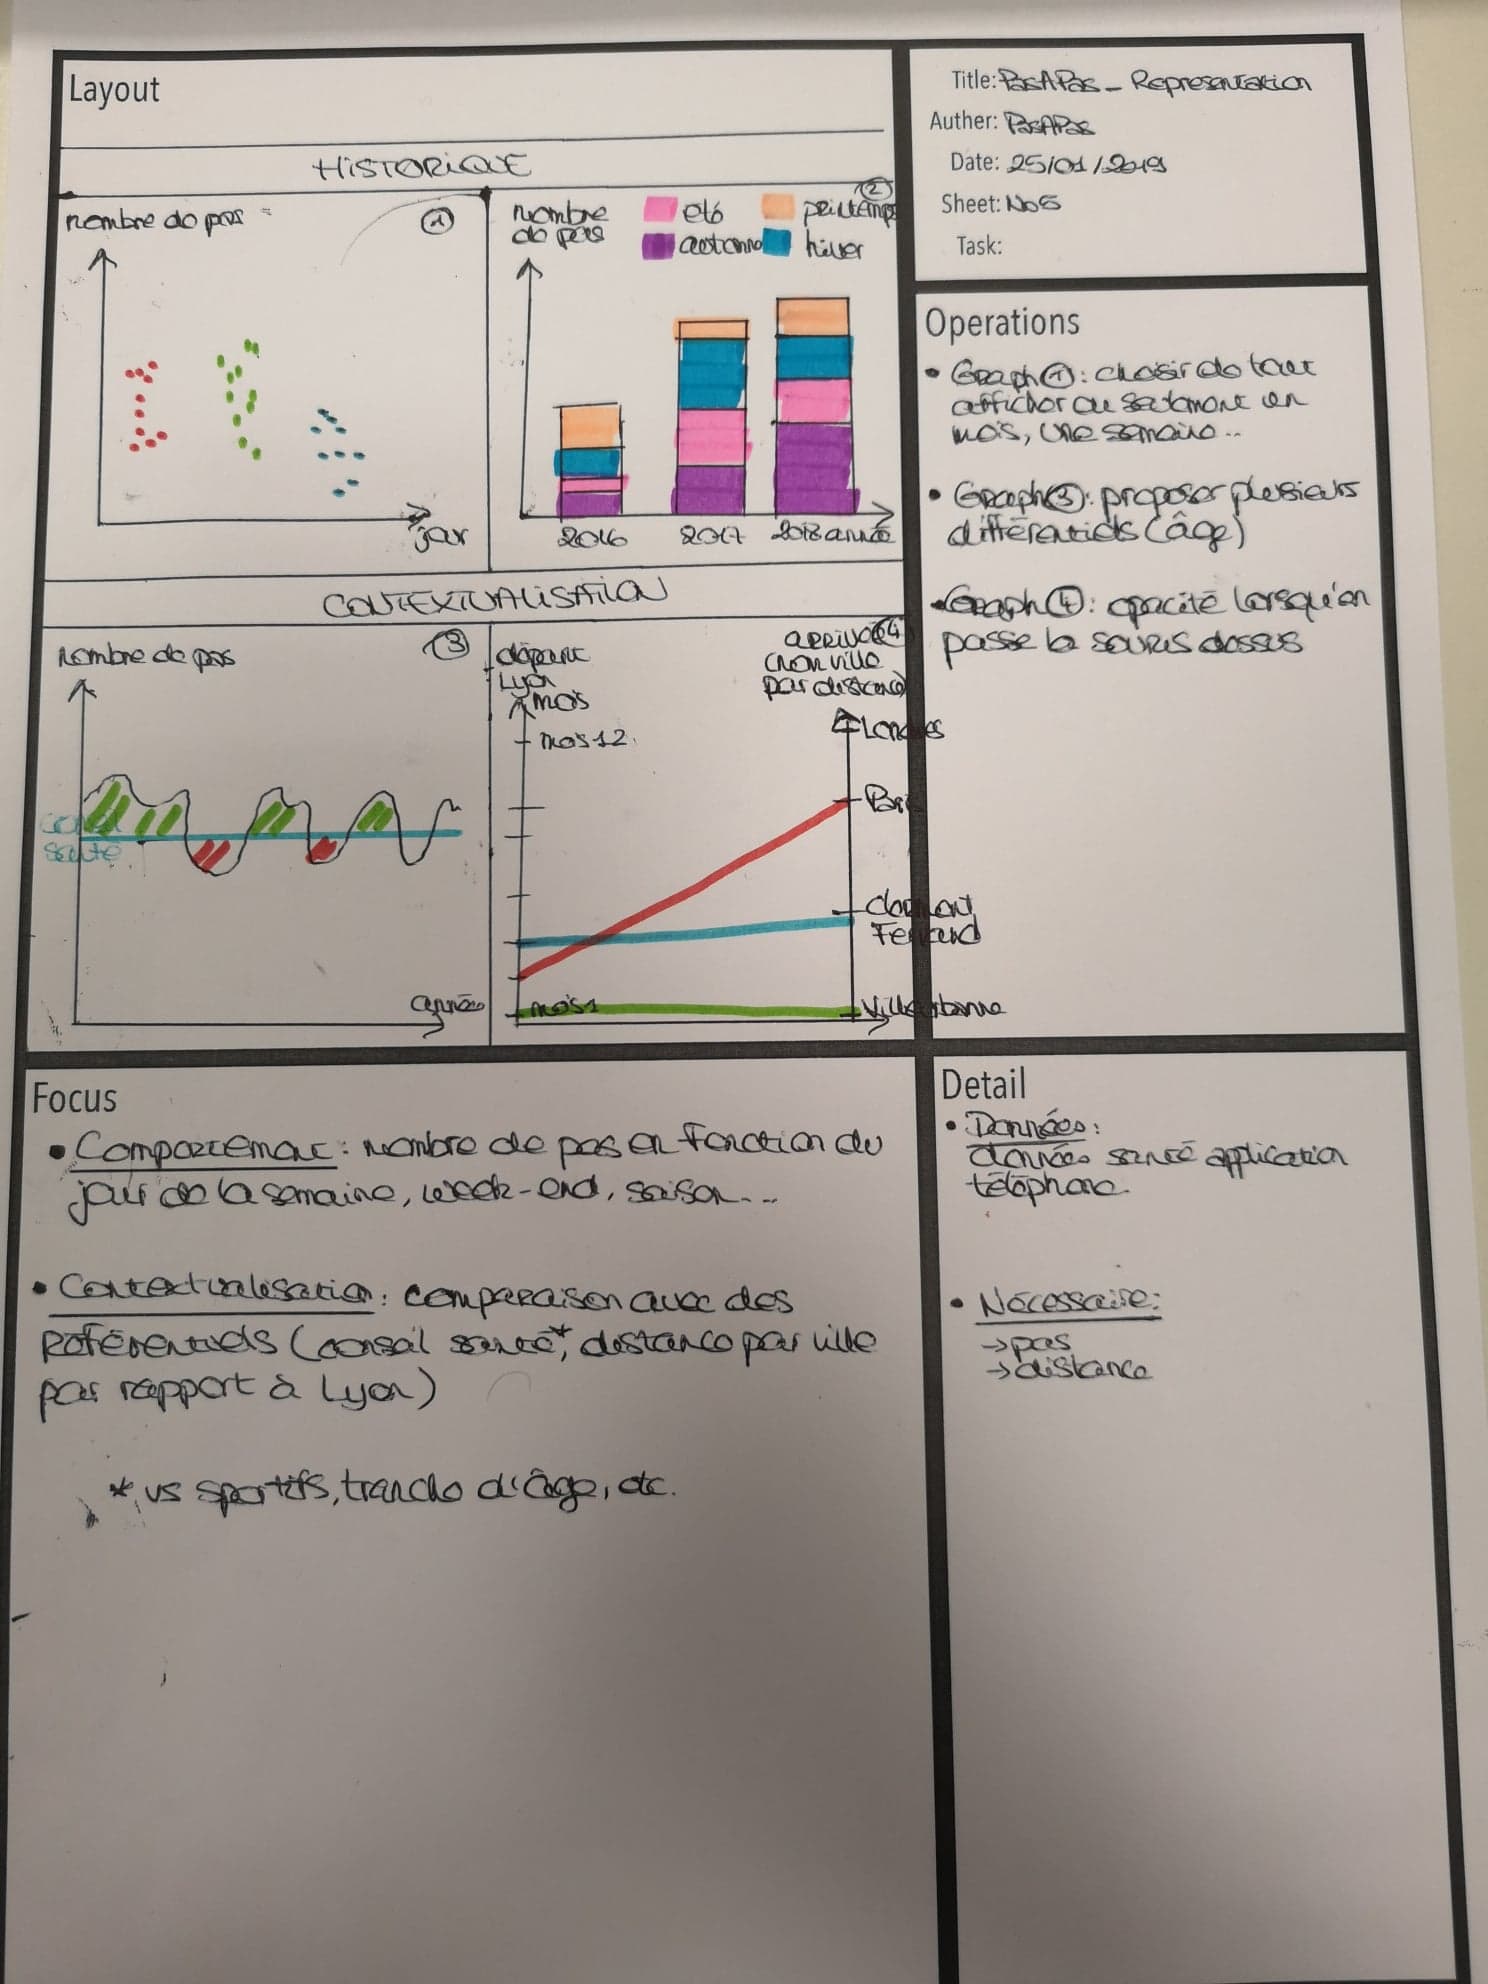 Layout
HISTORIQUE
nombre de pas
1
jour
2
nombre
de pas
eté
printemps
automne
hiver
2016
2017
2018
année
CONTEXTUALISATION
nombre de pas
3
conseil
santé
année
départ
Lyon
mois
mois 12
mois 1
ARRIVÉE 4
(nom ville
par distance)
Londres
Paris
Clermont
Ferrand
Villeurbanne
Title: PasAPas - Representation
Auther: PasAPas
Date: 25/01/2019
Sheet: No5
Task:
Operations
• Graph 1 : choisir de tout
afficher ou seulement un
mois, une semaine..
• Graph 3 : proposer plusieurs
différentiels (âge)
• Graph 4 : opacité lorsqu'on
passe la souris dessus
Focus
• Comportement : nombre de pas en fonction du
jour de la semaine, week-end, saison...
• Contextualisation : comparaison avec des
Référentiels (conseil santé*, distance par ville
par rapport à Lyon)
* vs sportifs, tranche d'âge, etc.
Detail
• Données :
données santé application
téléphone.
• Nécessaire :
→ pas
→ distance